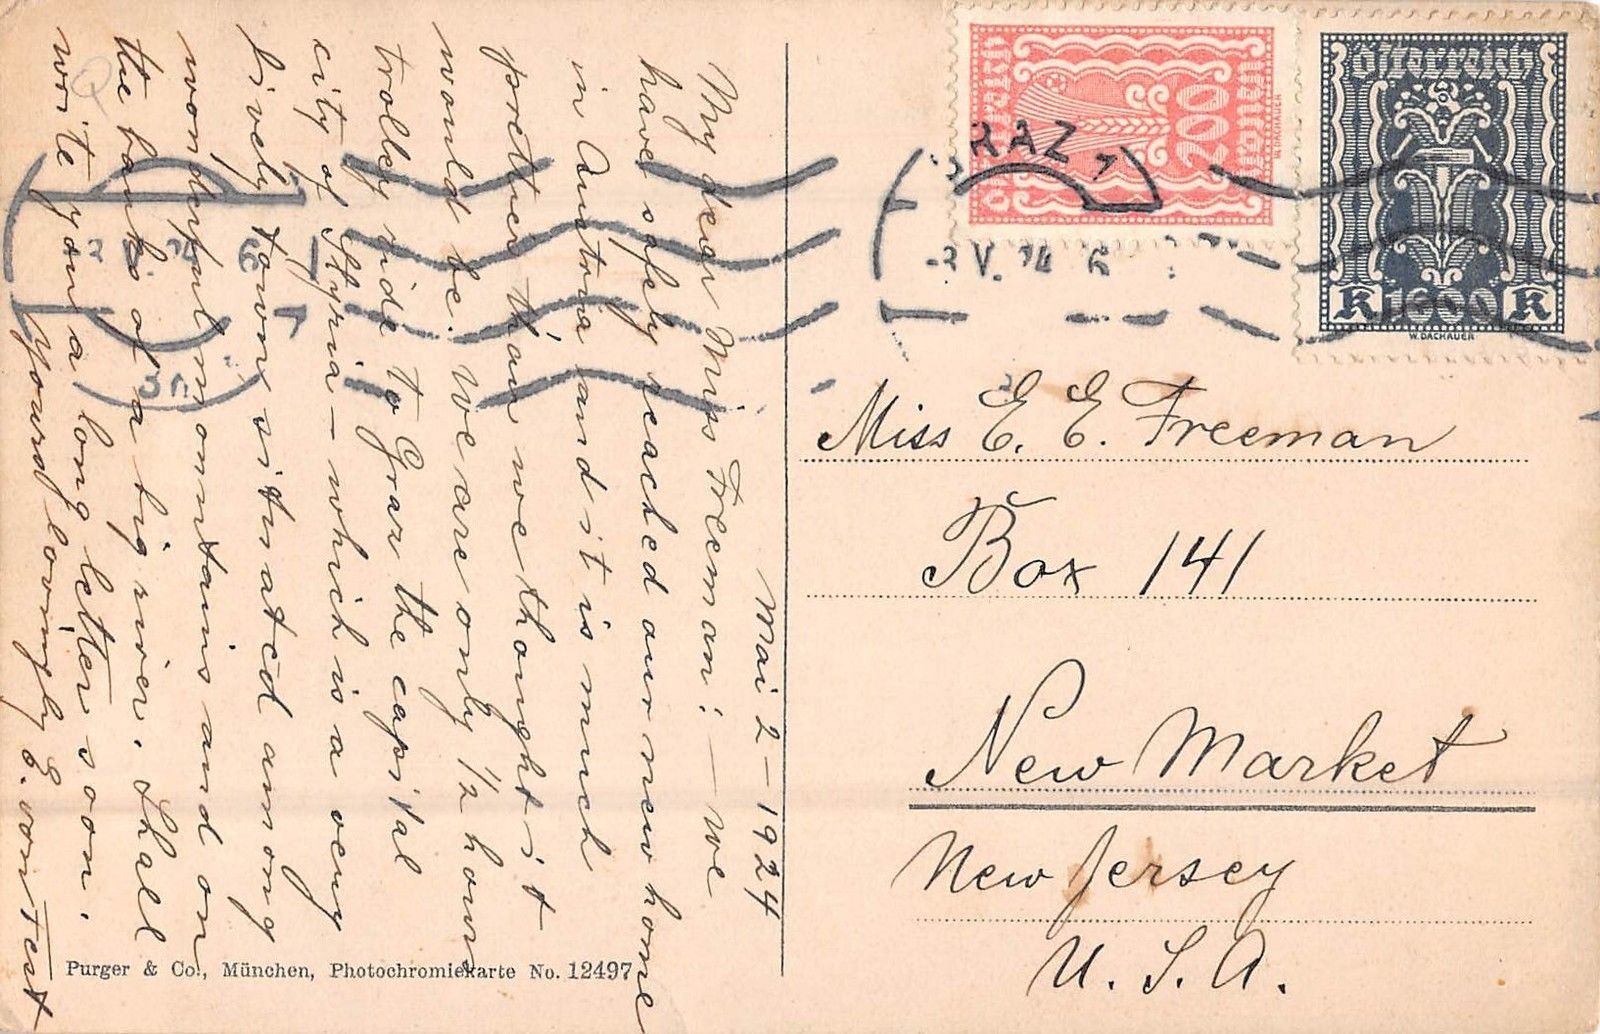 Mai 2 - 1924
My dear Miss Freeman: - We
have safely reached our new home
in Austria and it is much
prettier than we thought it
would be. We are only 1/2 hour
trolley ride to Graz the capital
city of Styria - which is a very
lively town situated among
wonderful mountains and on
the banks of a big river. Shall
write you a long letter soon.
Yours lovingly E. von
Purger & Co., München, Photochromiekarte No. 12497
200
W. DACHAUER
Österreich
K 1000 K
W. DACHAUER
RAZ 1
V. 24 6
Miss E. E. Freeman
Box 141
New Market
New Jersey
U. S. A.